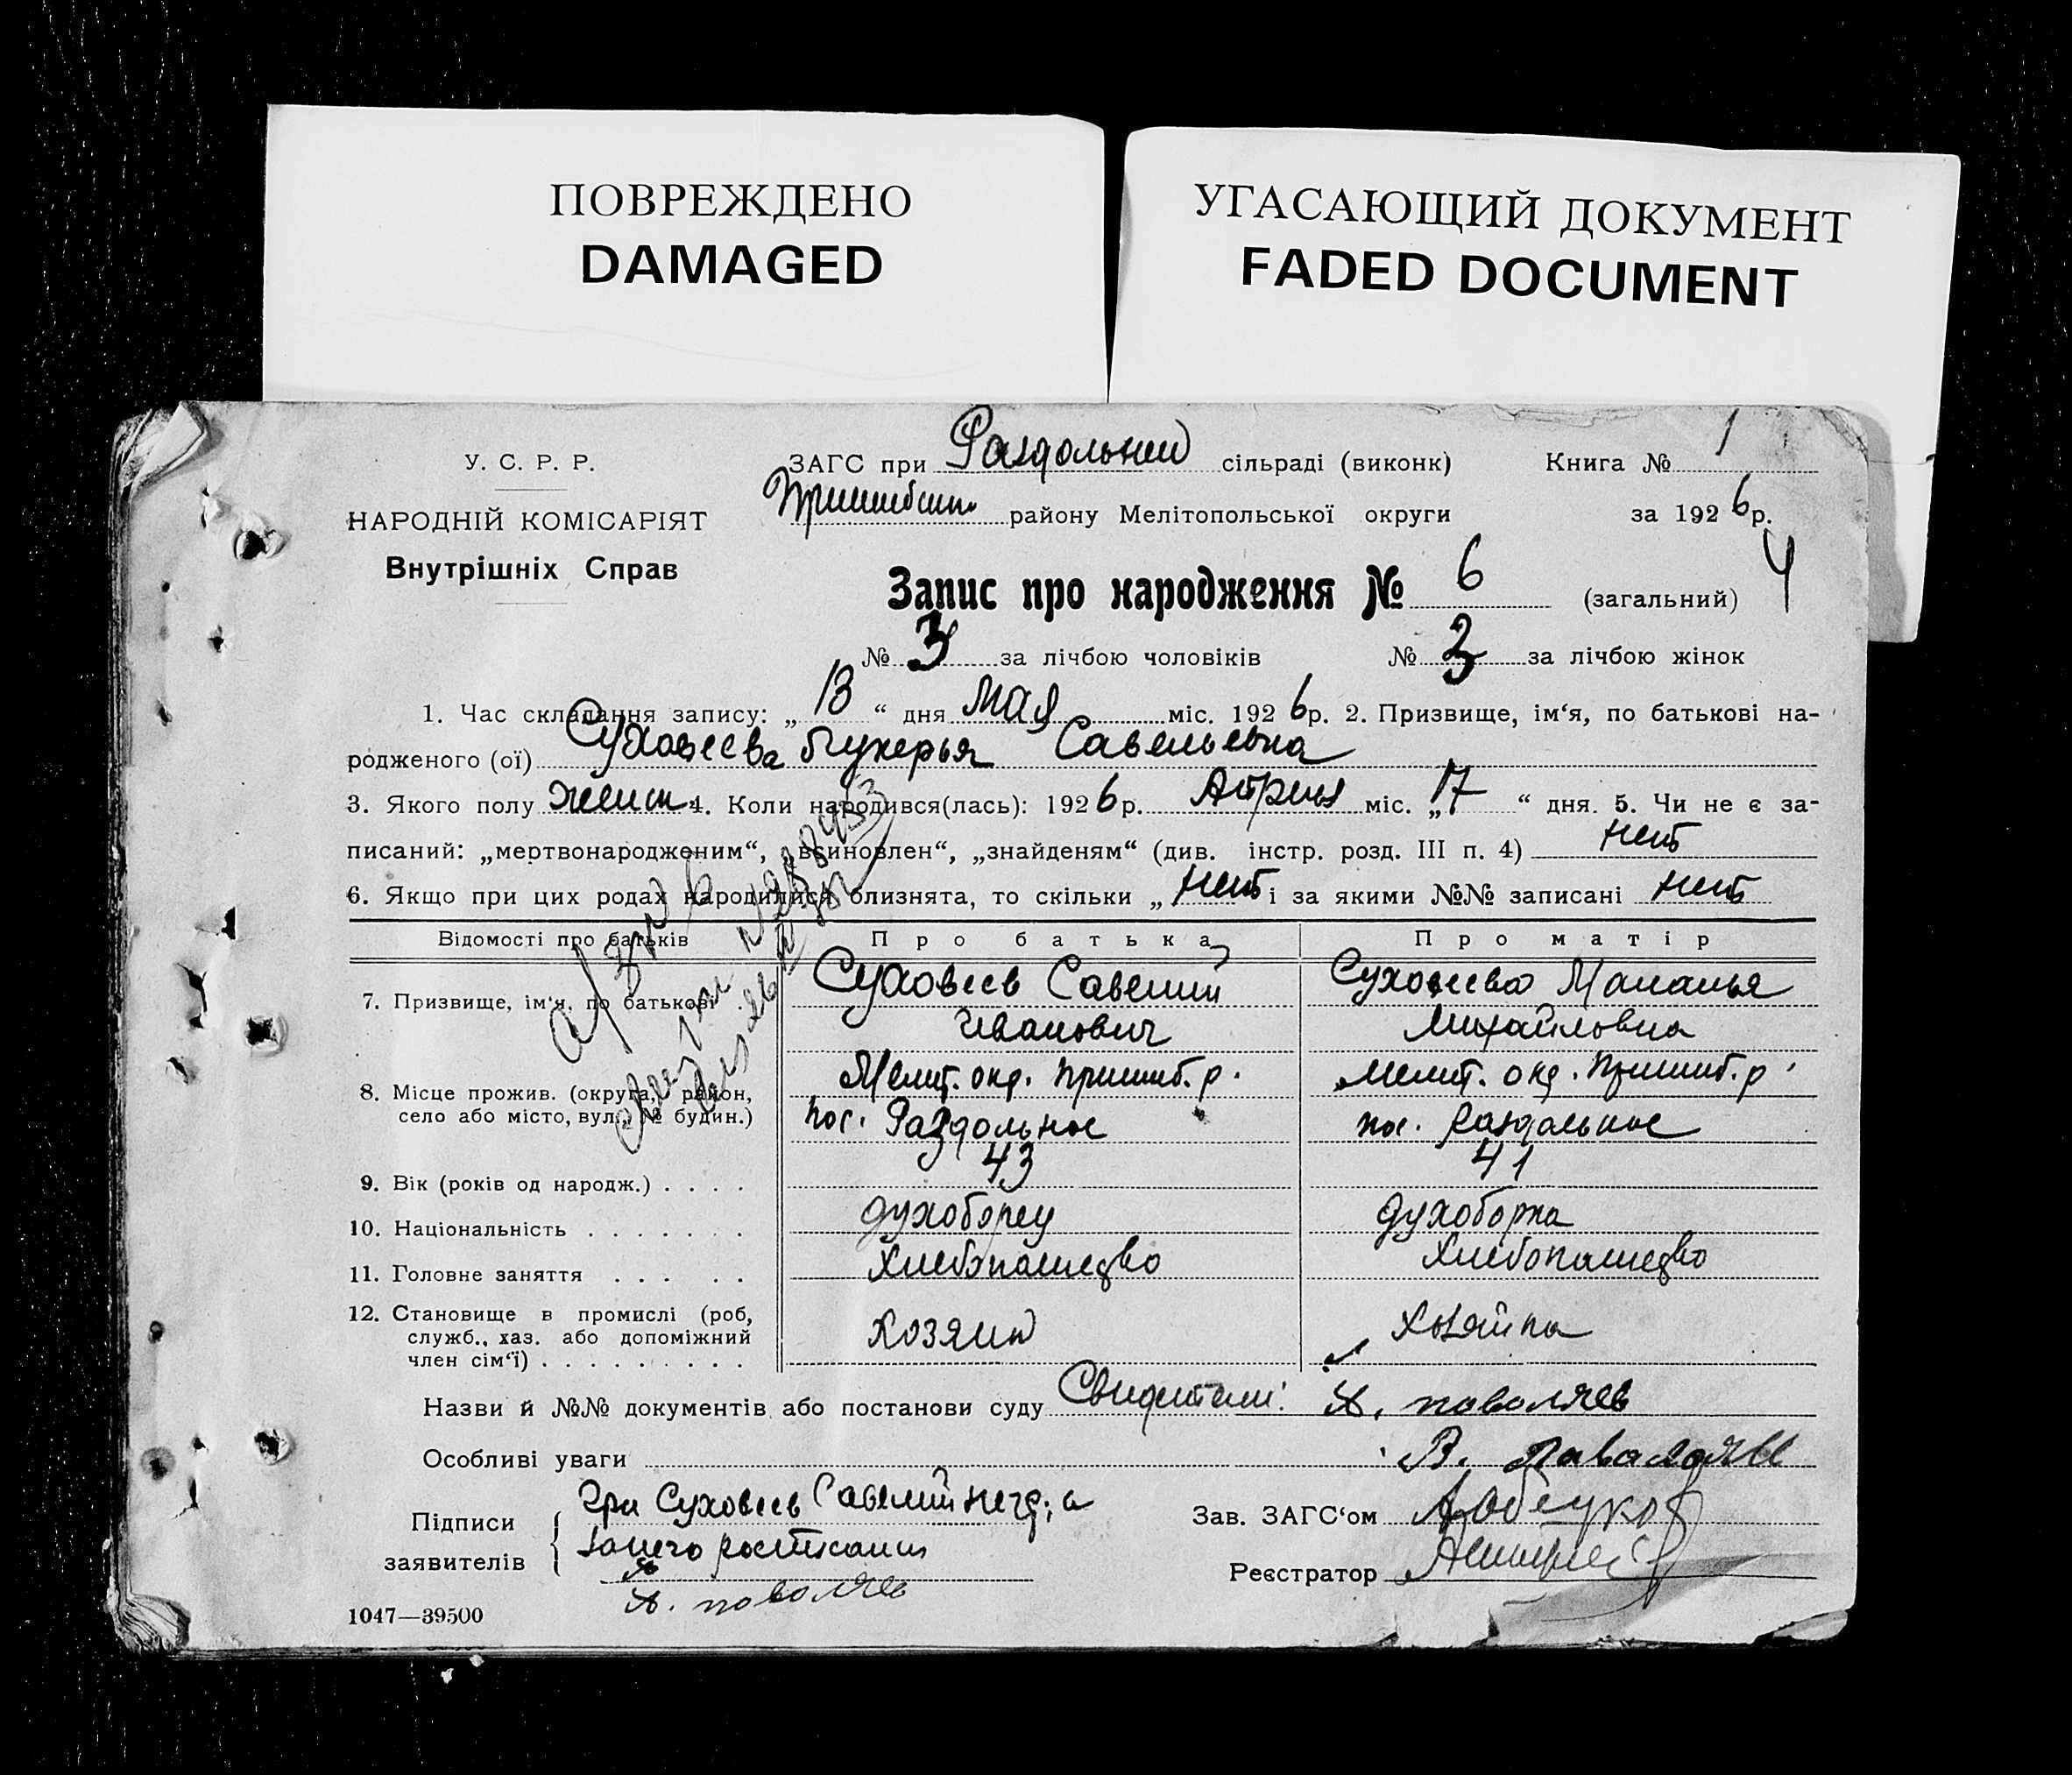 ПОВРЕЖДЕНО
DAMAGED
УГАСАЮЩИЙ ДОКУМЕНТ
FADED DOCUMENT
У. С. Р. Р.
НАРОДНІЙ КОМІСАРІЯТ
Внутрішніх Справ
ЗАГС при Раздольний сільраді (виконк) Книга № 1
району Мелітопольської округи за 1926 р.
4
Запис про народження № 6 (загальний)
№ 3 за лічбою чоловіків № 3 за лічбою жінок
1. Час складання запису: „ 13 “ дня мая міс. 1926 р. 2. Призвище, ім‘я, по батькові на-
родженого (ої) Суховеева Лукерья Савельевна
3. Якого полу женск. 4. Коли народився(лась): 1926 р. Апреля міс. „ 17 “ дня. 5. Чи не є за-
писаний: „мертвонародженим“, „всиновлен“, „знайденям“ (див. інстр. розд. III п. 4) нет
6. Якщо при цих родах народилися близнята, то скільки „ нет і за якими №№ записані нет
Відомості про батьків Про батька Про матір
7. Призвище, ім‘я, по батькові Суховеев Савелий Суховеева Маланья
Иванович Михайловна
8. Місце прожив. (округа, район, Мелит. окр. Пришиб. р. Мелит. окр. Пришиб. р
село або місто, вул., № будин.) пос. Раздольное пос. Раздольное
9. Вік (років од народж.) . . . . 43 41
10. Національність . . . . . . . духоборец духоборка
11. Головне заняття . . . . . Хлебопашество Хлебопашество
12. Становище в промислі (роб,
служб., хаз. або допоміжний Хозяин Хозяйка
член сім‘ї) . . . . . . . . .
Назви й №№ документів або постанови суду Свидетели: А. поволяев
Особливі уваги В. Паваляев
Підписи заявителів Гри Суховеев Савелий негр; а
за него росписался
А. поволяев
Зав. ЗАГС‘ом
Реєстратор
1047—39500